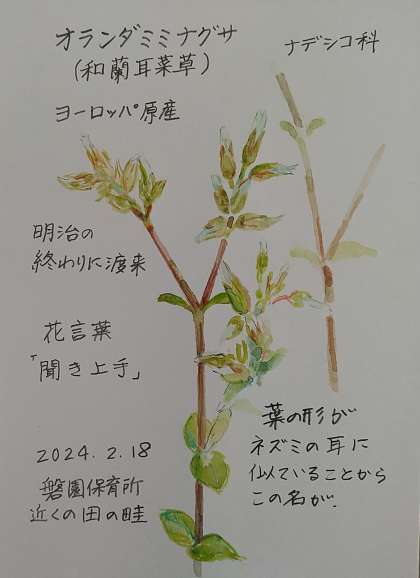 オランダミミナグサ
(和蘭耳菜草)
ナデシコ科
ヨーロッパ原産
明治の
終わりに渡来
花言葉
「聞き上手」
2024.2.18
磐園保育所
近くの田の畦
葉の形が
ネズミの耳に
似ていることから
この名が.